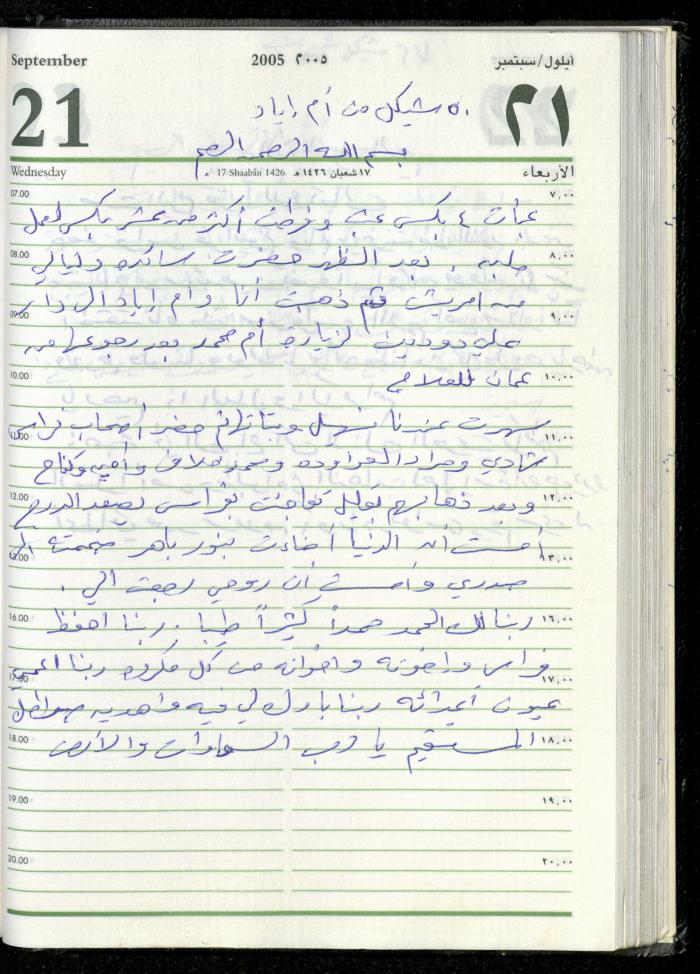 September 2005 ٢٠٠٥ أيلول/سبتمبر
21 ٢١
٥٠ شيكل من أم إياد
بسم الله الرحمن الرحيم
Wednesday 17 Shaabân 1426 ١٧ شعبان ١٤٢٦ هـ الأربعاء
07.00 ٧,٠٠
عبأت ٤ بكس عنب وفرطت أكثر من عشر بكس لعمل
08.00 ٨,٠٠
ملبن . بعد الظهر حضرت سائده وليالي
09.00 ٩,٠٠
من امريش ثم ذهبت أنا وأم إياد الى دار
علي دودين لزيارة أم محمد بعد رجوعها من
10.00 ١٠,٠٠
عمان للعلاج
11.00 ١١,٠٠
سهرت عندنا نهيل وبناتها ثم حضر أصحاب فراس
شادي ومراد ومحمد خلاف وأمين
12.00 ١٢,٠٠
وبعد ذهابهم بقليل تفاجئت بفراس يصعد الدرج
13.00 ١٣,٠٠
أحسست أن الدنيا أضاءت بنور باهر ضممته الى
صدري وأحسست أن روحي رجعت الي .
16.00 ١٦,٠٠
ربنا لك الحمد حمداً كثيراً طيبا . ربنا احفظ
17.00 ١٧,٠٠
فراس وإخوته واخوانه من كل مكروه ربنا اعمي
عيون أعدائه ربنا بارك لي فيه واهديه صراطك
18.00 ١٨,٠٠
المستقيم يا رب السماوات والأرض
19.00 ١٩,٠٠
20.00 ٢٠,٠٠